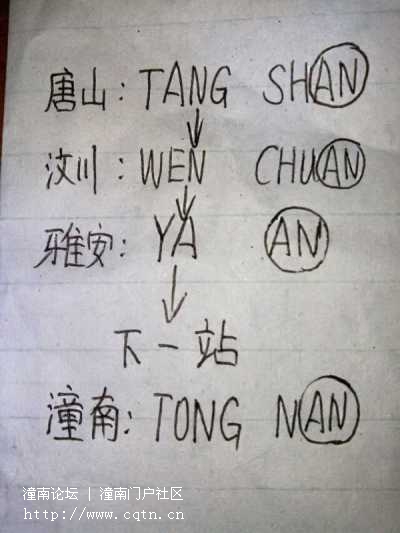 唐山: TANG SHAN
汶川: WEN CHUAN
雅安: YA AN
下一站
潼南: TONG NAN
潼南论坛 | 潼南门户社区
http://www.cqtn.cn